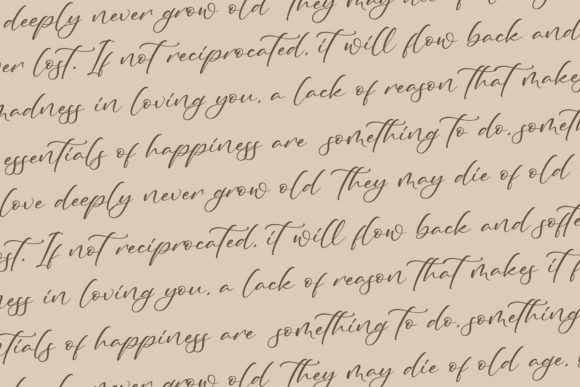 deeply never grow old They may
lost. If not reciprocated, it will flow back and
madness in loving you, a lack of reason that makes
essentials of happiness are something to do,
love deeply never grow old They may die of old
If not reciprocated, it will flow back and
in loving you, a lack of reason that makes it
of happiness are something to do, something
never grow old They may die of old age,